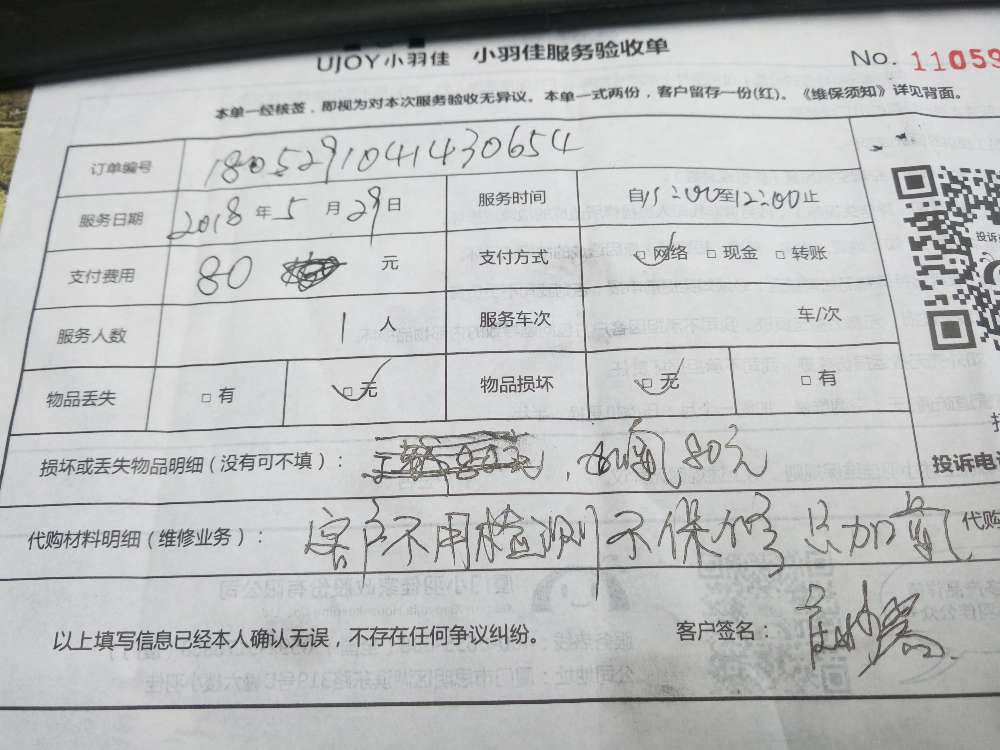 UJOY小羽佳 小羽佳服务验收单
No. 11059
本单一经核签，即视为对本次服务验收无异议。本单一式两份，客户留存一份(红)。《维保须知》详见背面。
订单编号 180529104143 0654
服务日期 2018 年 5 月 29 日 服务时间 自11:00至12:00止
支付费用 80 元 支付方式 □ 网络 □ 现金 □ 转账
服务人数 1 人 服务车次 车/次
物品丢失 □ 有 □ 无 物品损坏 □ 无 □ 有
损坏或丢失物品明细（没有可不填）： 80元
投诉电
代购材料明细（维修业务）： 客户不用检测不保修只加氟 代购
以上填写信息已经本人确认无误，不存在任何争议纠纷。 客户签名：